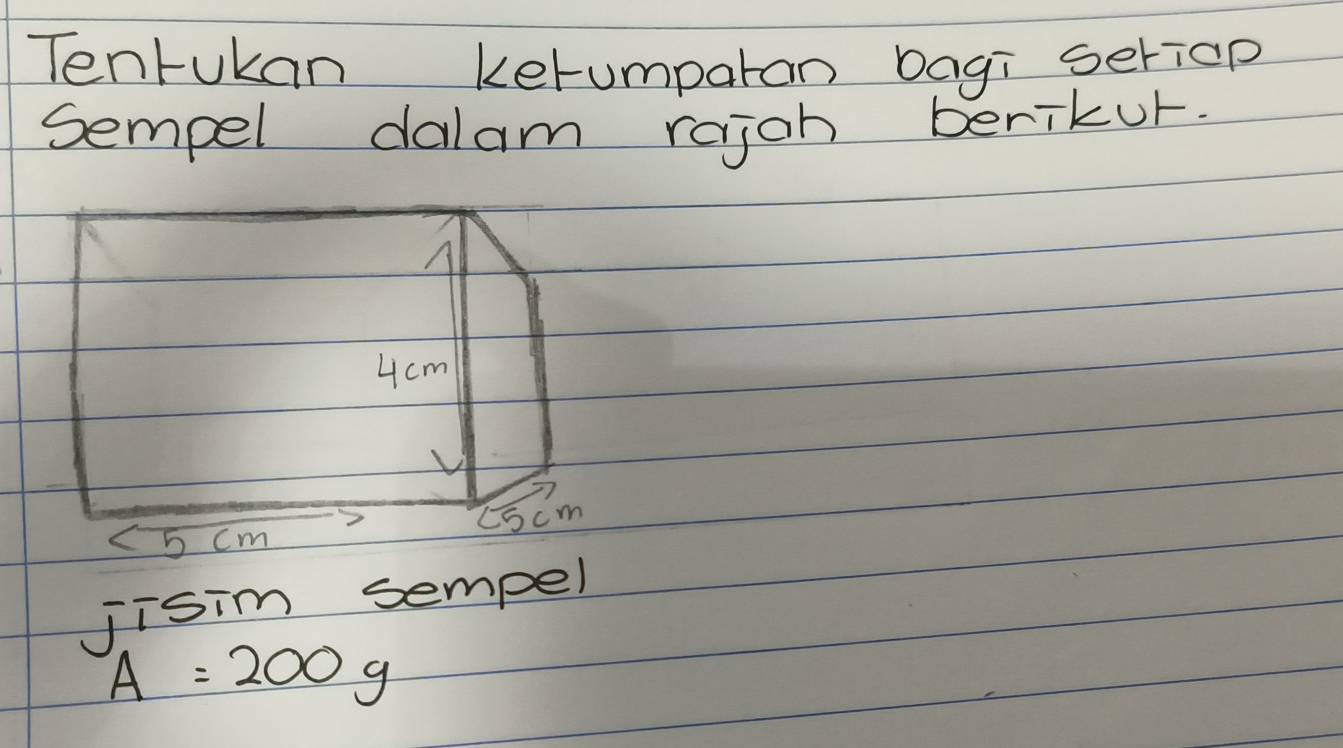 Tentukan ketumpatan bagi setiap
Sempel dalam rajah berikut.
4cm
5 cm
5cm
jisim sempel
A = 200 g